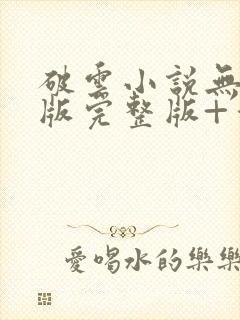 破雲小說無
版完整版+
愛喝水的樂樂